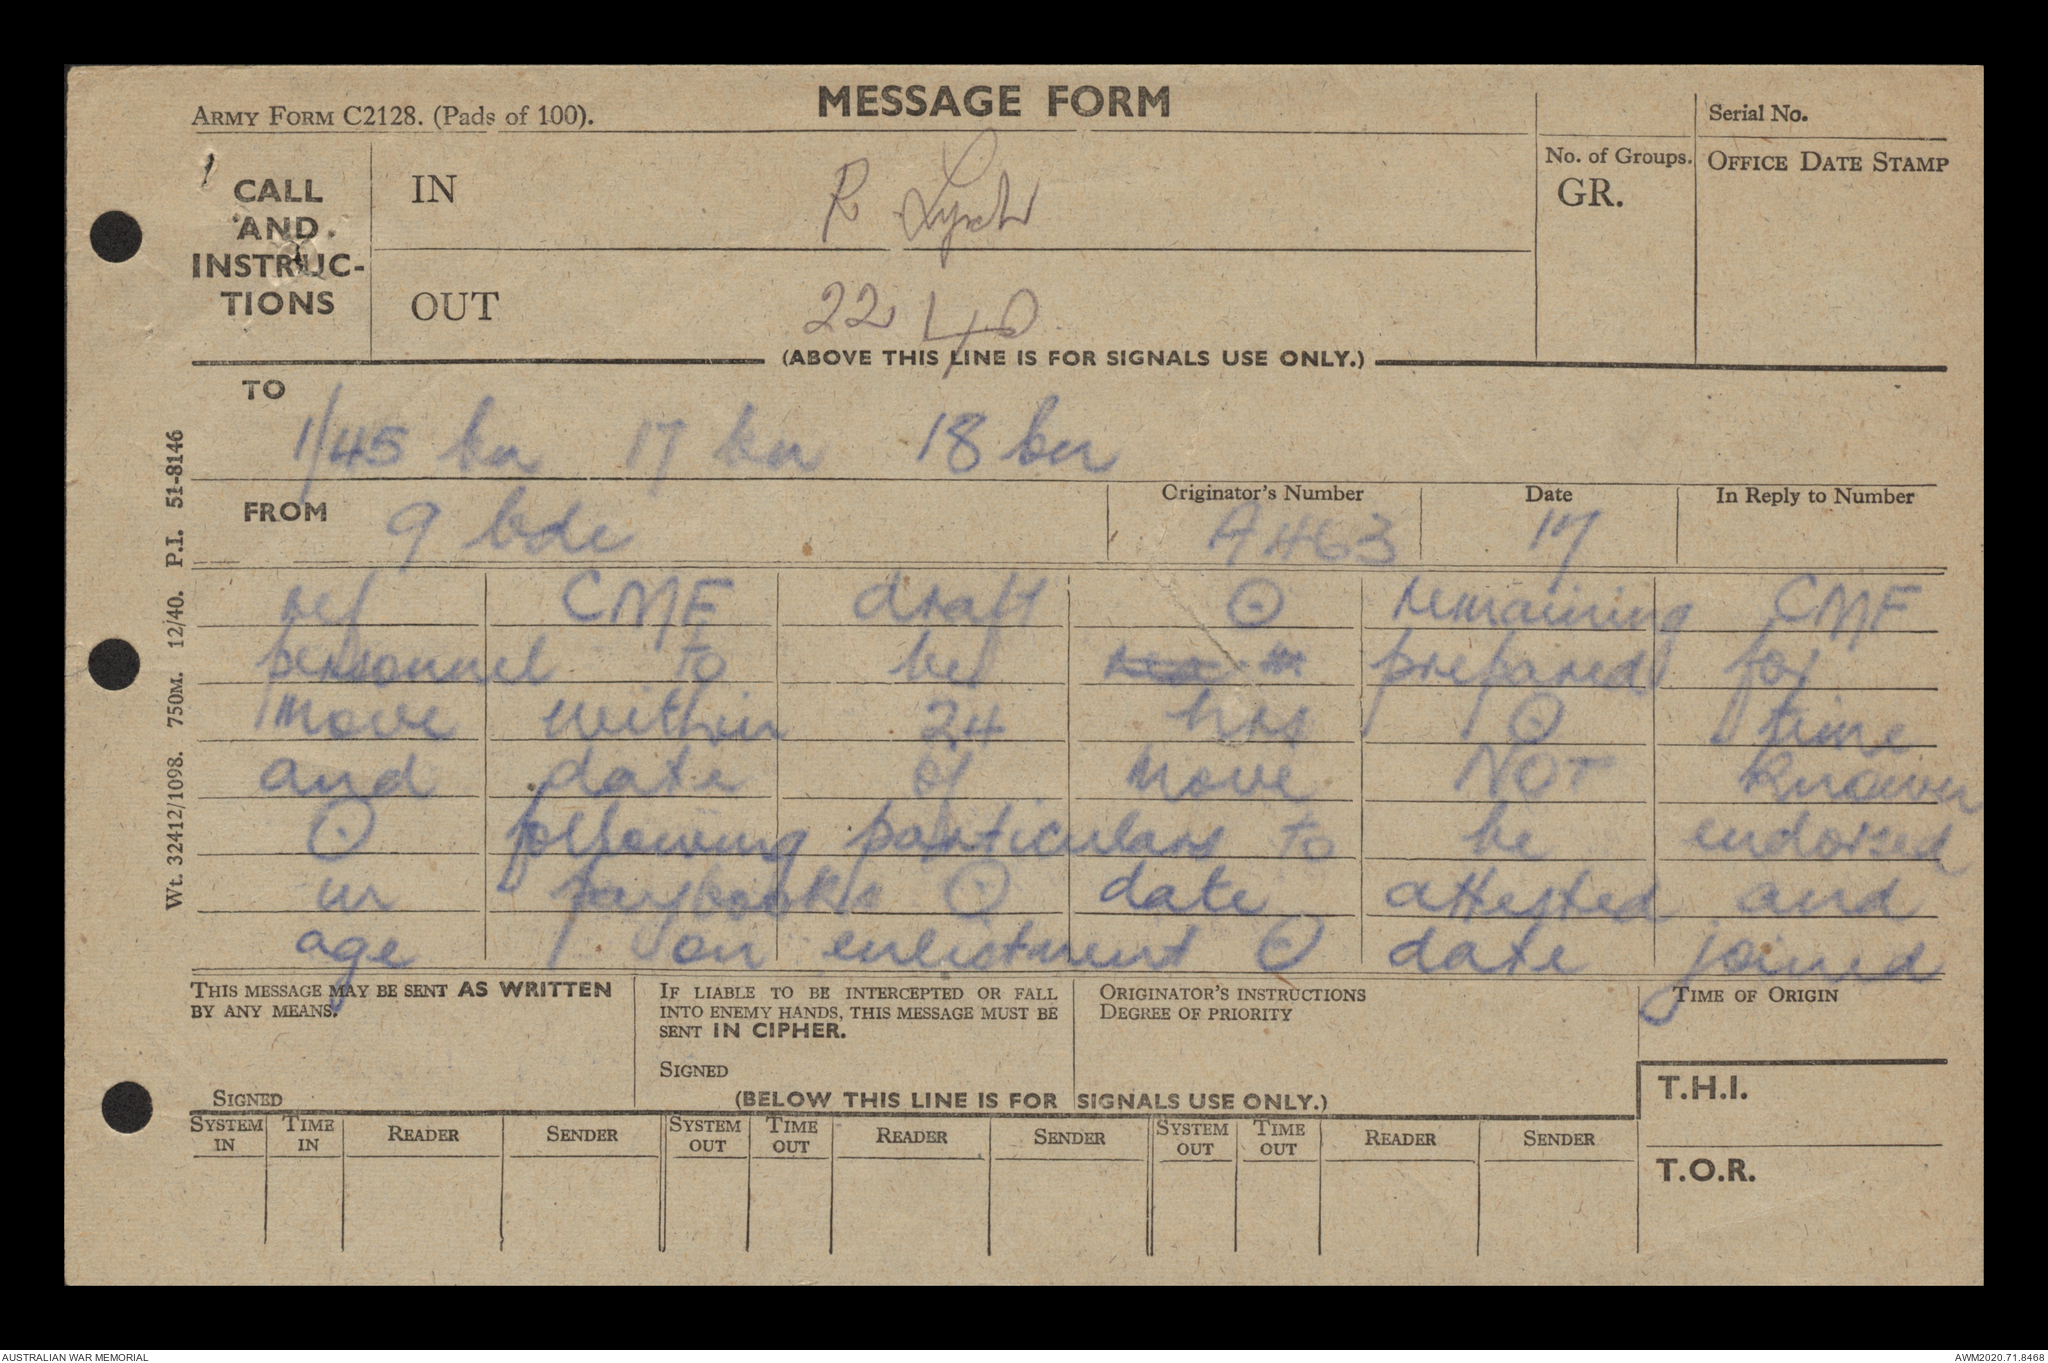 ARMY FORM C2128. (Pads of 100).
MESSAGE FORM
Serial No.
CALL
AND
INSTRUC-
TIONS
IN
R Lynch
No. of Groups.
GR.
OFFICE DATE STAMP
OUT
2240
(ABOVE THIS LINE IS FOR SIGNALS USE ONLY.)
TO
1/45 bn 17 bn 18 bn
FROM 9 bde
Originator's Number
A463
Date
17
In Reply to Number
ref CMF draft ⊙ remaining CMF
personnel to be prepared for
move within 24 hrs ⊙ time
and date of move NOT known
⊙ following particulars to be endorsed
in paybooks ⊙ date attested and
age on enlistment ⊙ date joined
THIS MESSAGE MAY BE SENT AS WRITTEN
BY ANY MEANS.
SIGNED
IF LIABLE TO BE INTERCEPTED OR FALL
INTO ENEMY HANDS, THIS MESSAGE MUST BE
SENT IN CIPHER.
SIGNED
ORIGINATOR'S INSTRUCTIONS
DEGREE OF PRIORITY
TIME OF ORIGIN
(BELOW THIS LINE IS FOR SIGNALS USE ONLY.)
T.H.I.
SYSTEM IN
TIME IN
READER
SENDER
SYSTEM OUT
TIME OUT
READER
SENDER
SYSTEM OUT
TIME OUT
READER
SENDER
T.O.R.
Wt. 32412/1098. 750M. 12/40. P.I. 51-8146
AUSTRALIAN WAR MEMORIAL
AWM2020.71.8468